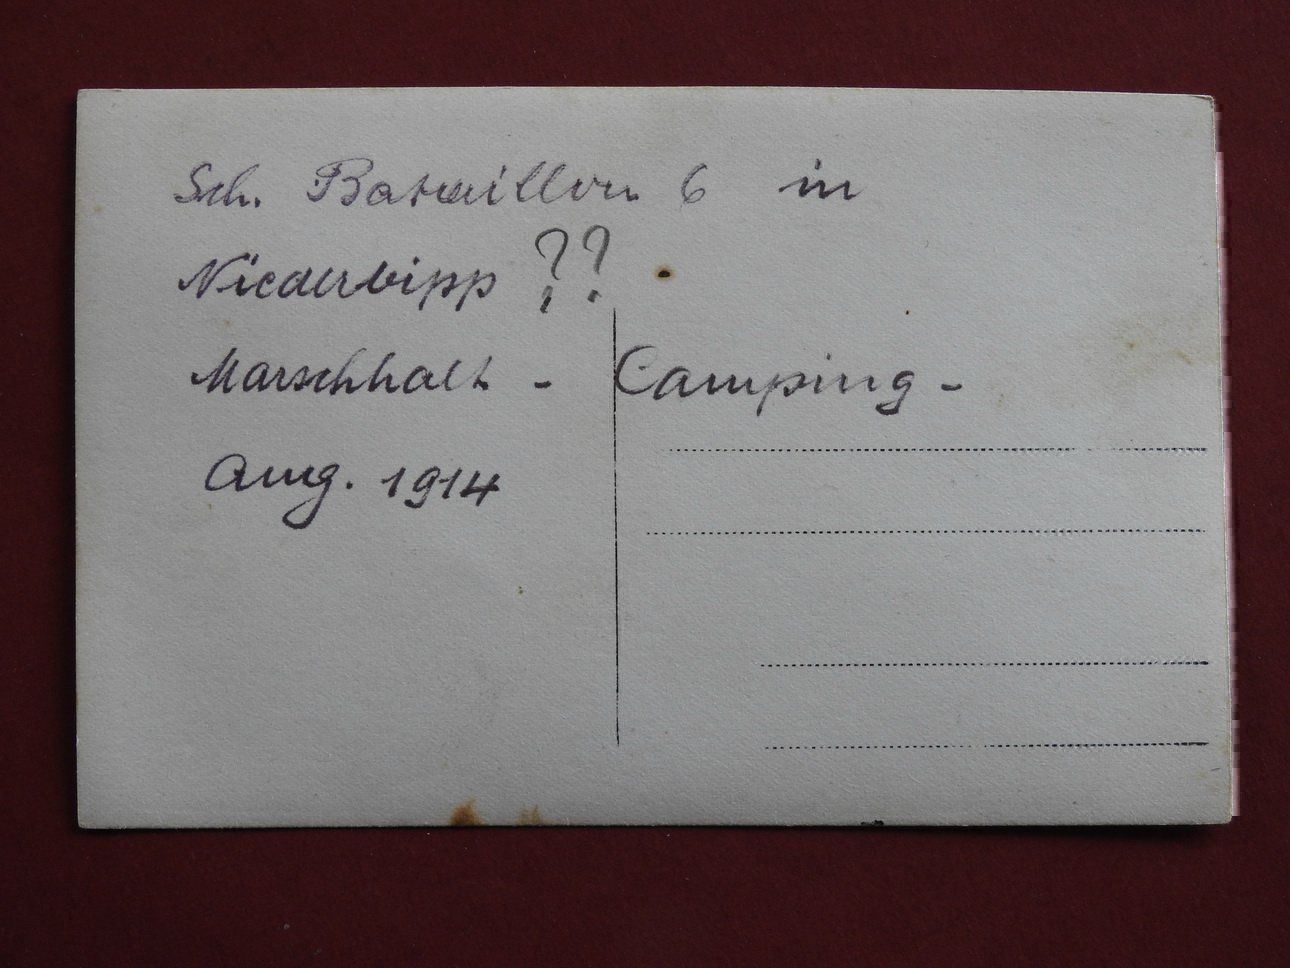 Sch. Bataillon 6 in
Niederbipp ??
Marschhalt - Camping -
Aug. 1914